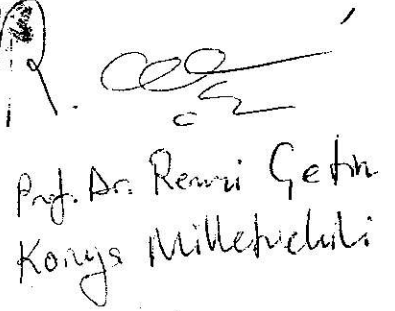 R.
Prof. Dr. Remzi Çetin
Konya Milletvekili